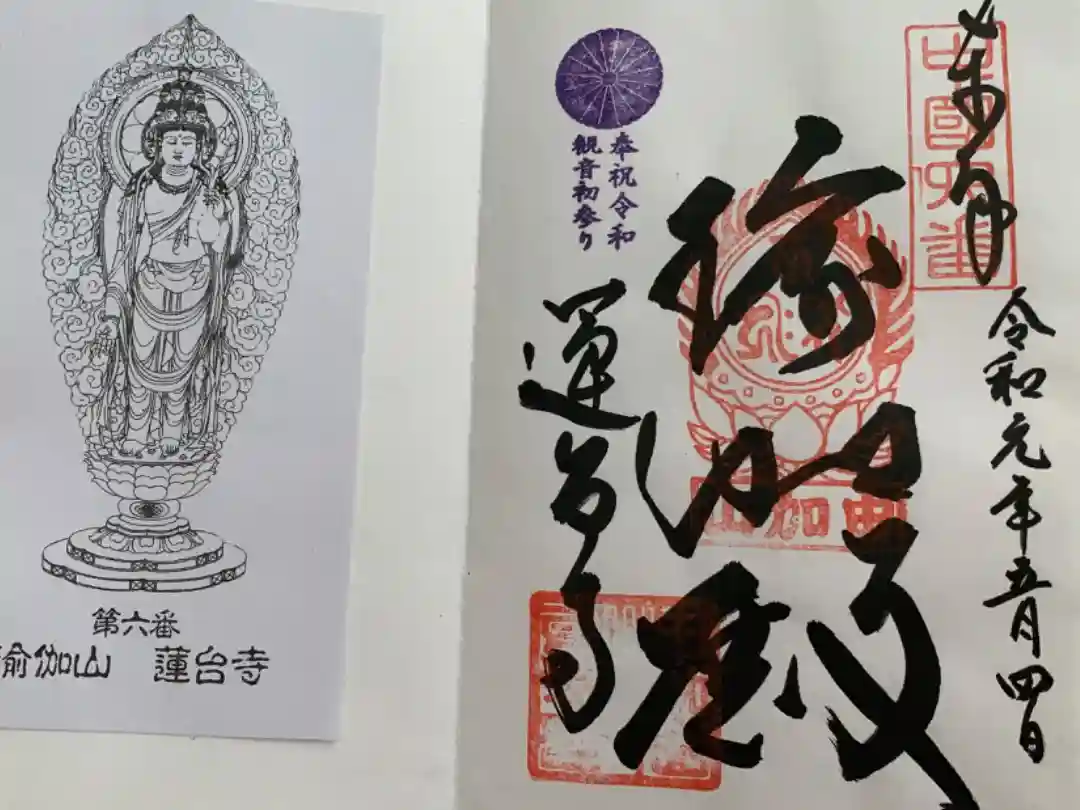 第六番
瑜伽山 蓮台寺
奉拝
中國六番
令和元年五月四日
瑜伽殿
瑜伽山
奉祝令和
観音初参り
蓮台寺